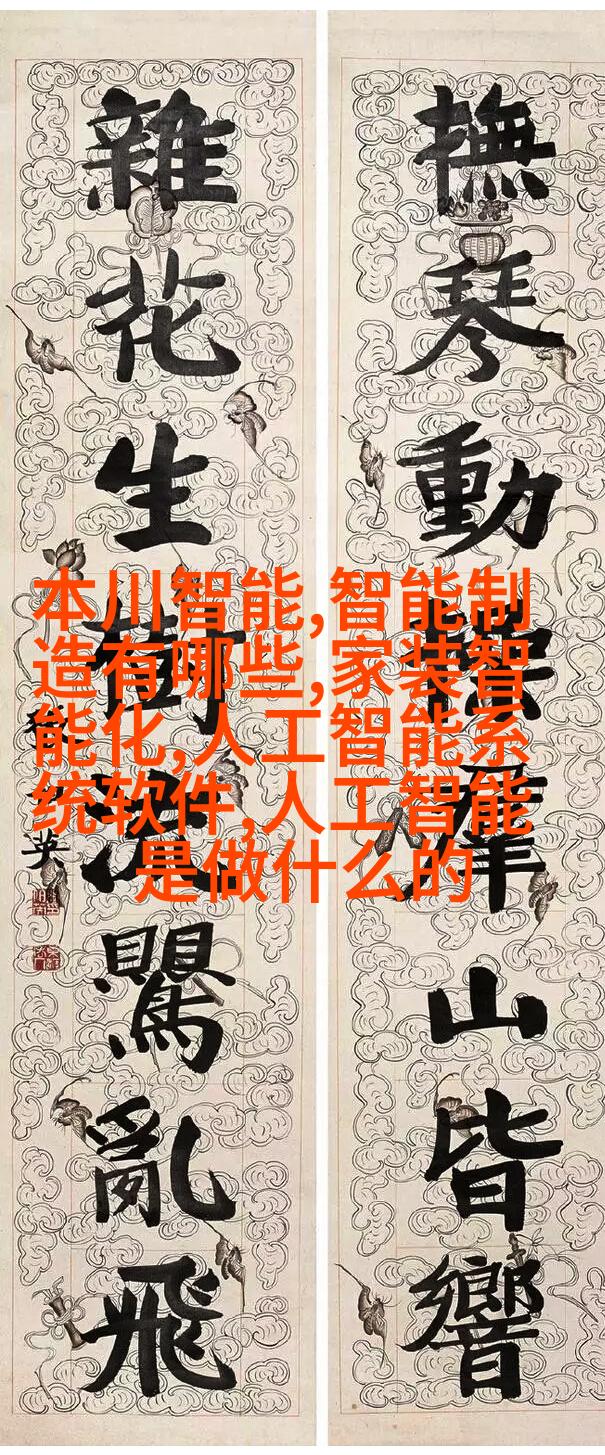 撫琴動操山皆響
雜花生樹鸎亂飛
英
本川智能,智能制
造有哪些,家装智
能化,人工智能系
统软件,人工智能
是做什么的